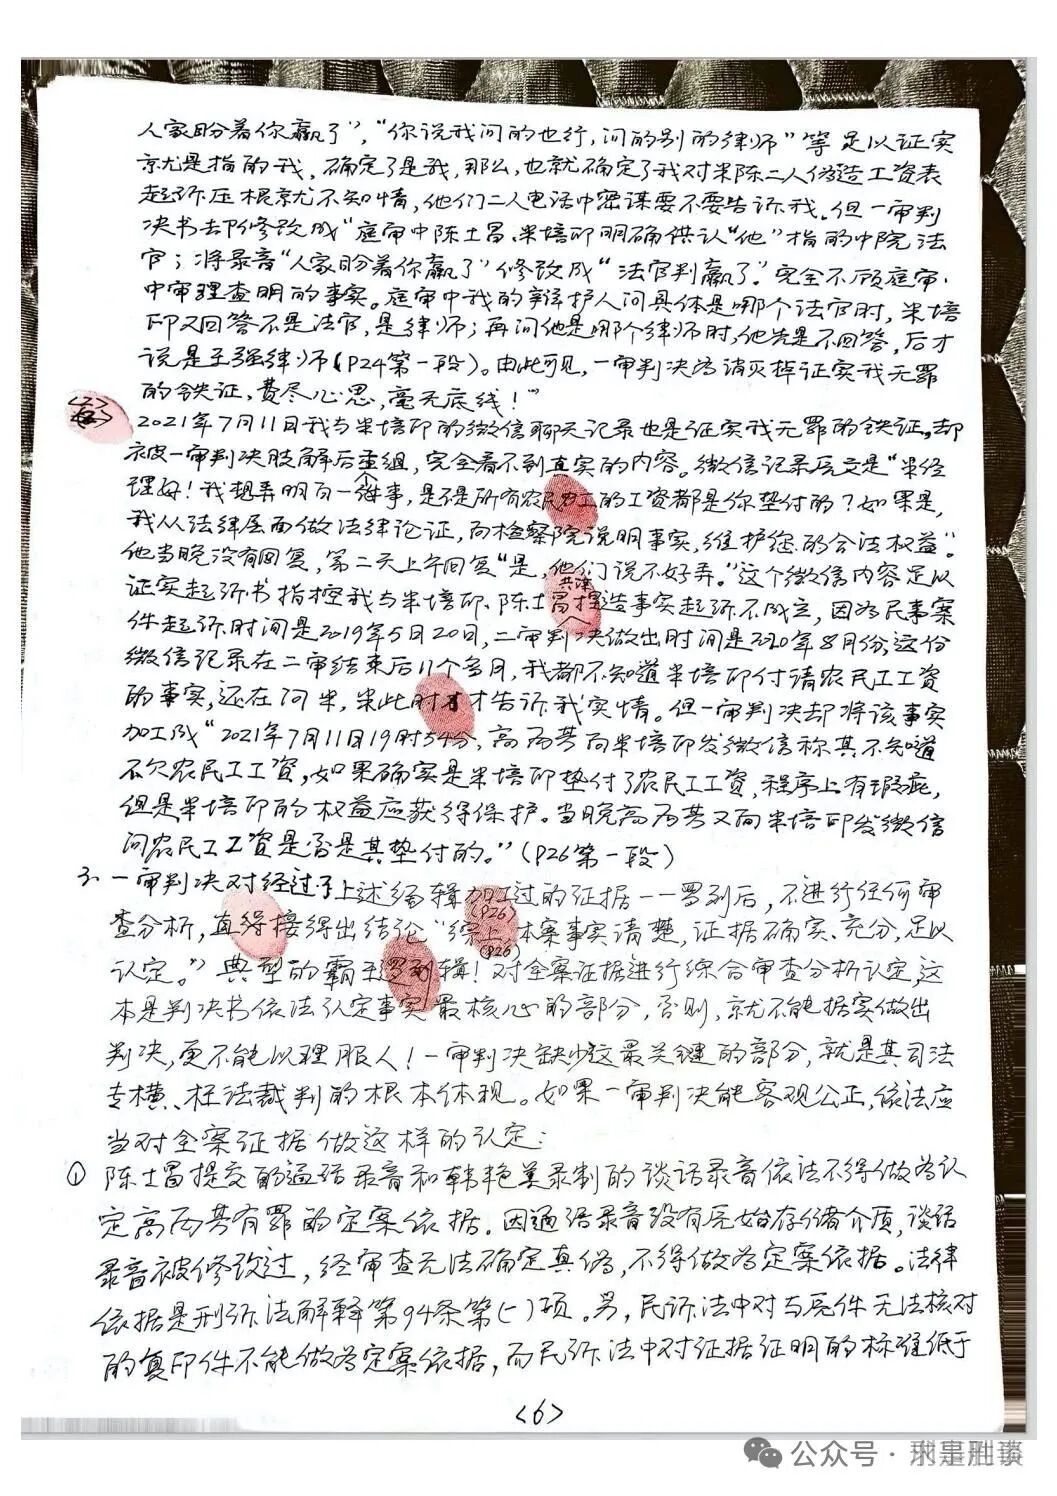 人家盼着你赢了”，“你说我问的也行，问的别的律师”等足以证实
就是指的我。确定了是我，那么，也就确定了我对米陈二人伪造工资表
起诉压根就不知情，他们二人电话中密谋要不要告诉我。但一审判
决书却修改成“庭审中陈士昌、米培印明确供认“他”指的中院法
官；将录音“人家盼着你赢了”修改成“法官判赢了”。完全不顾庭审
中审理查明的事实。庭审中我的辩护人问具体是哪个法官时，米培
印又回答不是法官，是律师；再问他是哪个律师时，他先是不回答，后才
说是王强律师（P24第一段）。由此可见，一审判决为消灭掉证实我无罪
的铁证，费尽心思，毫无底线！”
2021年7月11日我与米培印的微信聊天记录也是证实我无罪的铁证，却
被一审判决肢解后重组，完全看不到真实的内容。微信记录原文是“米经
理好！我想弄明白一件事，是不是所有农民工的工资都是你垫付的？如果是，
我从法律层面做法律论证，向检察院说明事实，维护您的合法权益”。
他当晚没有回复，第二天上午回复“是，他们说不好弄。”这个微信内容足以
证实起诉书指控我与米培印、陈士昌共谋捏造事实起诉不成立，因为民事案
件起诉时间是2019年5月20日，二审判决做出时间是2020年8月份，这份
微信记录在二审结束后11个多月，我都不知道米培印付请农民工工资
的事实，还在问米，米此时才告诉我实情。但一审判决却将该事实
加工成“2021年7月11日19时54分，高丙芳向米培印发微信称其不知道
不欠农民工工资，如果确实是米培印垫付了农民工工资，程序上有瑕疵，
但是米培印的权益应获得保护。当晚高丙芳又向米培印发微信
问农民工工资是否是其垫付的。”（P26第一段）
3、一审判决对经过了上述编辑加工过的证据一一罗列后，不进行任何审
查分析，直接得出结论“综上，本案事实清楚，证据确实、充分，足以
(P26)
认定。”典型的霸王逻辑！对全案证据进行综合审查分析认定，这
本是判决书依法认定事实最核心的部分，否则，就不能据实做出
判决，更不能以理服人！一审判决缺少这最关键的部分，就是其司法
专横、枉法裁判的根本体现。如果一审判决能客观公正，依法应
当对全案证据做这样的认定：
① 陈士昌提交的通话录音和韩艳美录制的谈话录音依法不得做为认
定高丙芳有罪的定案依据。因通话录音没有原始存储介质，谈话
录音被修改过，经审查无法确定真伪，不得做为定案依据。法律
依据是刑诉法解释第94条第（一）项。另，民诉法中对与原件无法核对
的复印件不能做为定案依据，而民诉法中对证据证明的标准低于
<6>
公众号·刑事胜谈